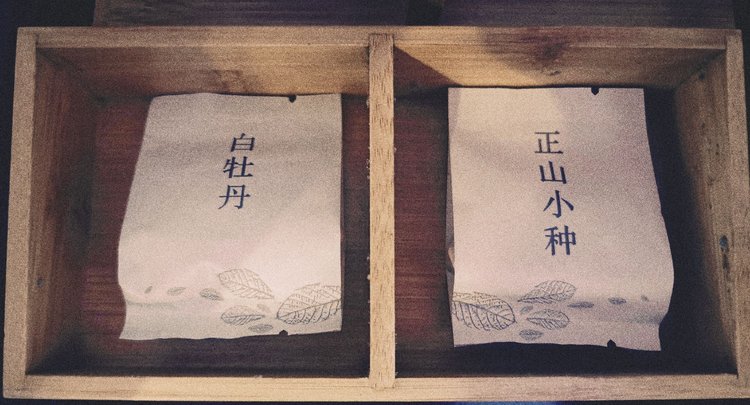 白牡丹
正山小种